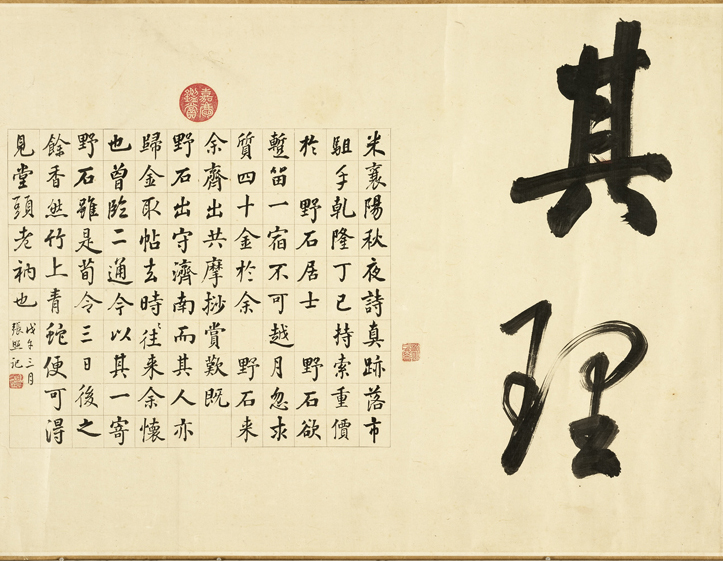 其理
米襄陽秋夜詩真跡落市
駔手乾隆丁巳持索重價
於 野石居士 野石欲
蹔留一宿不可越月忽求
質四十金於余 野石來
余齋出共摩挱賞歎既
野石出守濟南而其人亦
歸金取帖去時往來余懷
也曾臨二通今以其一寄
野石雖是荀令三日後之
餘香然竹上青蛇便可得
見堂頭老衲也
戊午三月
張照記
嘉慶鑑賞